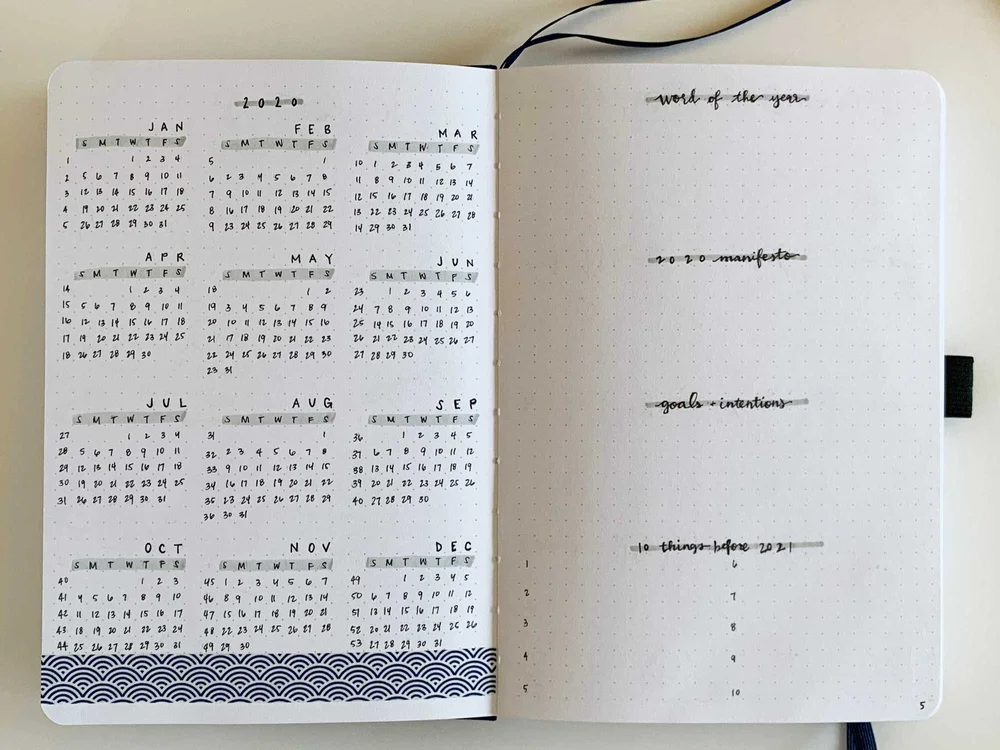 2020
JAN
S M T W T F S
1 1 2 3 4
2 5 6 7 8 9 10 11
3 12 13 14 15 16 17 18
4 19 20 21 22 23 24 25
5 26 27 28 29 30 31
FEB
S M T W T F S
5 1
6 2 3 4 5 6 7 8
7 9 10 11 12 13 14 15
8 16 17 18 19 20 21 22
9 23 24 25 26 27 28 29
MAR
S M T W T F S
10 1 2 3 4 5 6 7
11 8 9 10 11 12 13 14
12 15 16 17 18 19 20 21
13 22 23 24 25 26 27 28
14 29 30 31
APR
S M T W T F S
14 1 2 3 4
15 5 6 7 8 9 10 11
16 12 13 14 15 16 17 18
17 19 20 21 22 23 24 25
18 26 27 28 29 30
MAY
S M T W T F S
18 1 2
19 3 4 5 6 7 8 9
20 10 11 12 13 14 15 16
21 17 18 19 20 21 22 23
22 24 25 26 27 28 29 30
23 31
JUN
S M T W T F S
23 1 2 3 4 5 6
24 7 8 9 10 11 12 13
25 14 15 16 17 18 19 20
26 21 22 23 24 25 26 27
27 28 29 30
JUL
S M T W T F S
27 1 2 3 4
28 5 6 7 8 9 10 11
29 12 13 14 15 16 17 18
30 19 20 21 22 23 24 25
31 26 27 28 29 30 31
AUG
S M T W T F S
31 1
32 2 3 4 5 6 7 8
33 9 10 11 12 13 14 15
34 16 17 18 19 20 21 22
35 23 24 25 26 27 28 29
36 30 31
SEP
S M T W T F S
36 1 2 3 4 5
37 6 7 8 9 10 11 12
38 13 14 15 16 17 18 19
39 20 21 22 23 24 25 26
40 27 28 29 30
OCT
S M T W T F S
40 1 2 3
41 4 5 6 7 8 9 10
42 11 12 13 14 15 16 17
43 18 19 20 21 22 23 24
44 25 26 27 28 29 30 31
NOV
S M T W T F S
45 1 2 3 4 5 6 7
46 8 9 10 11 12 13 14
47 15 16 17 18 19 20 21
48 22 23 24 25 26 27 28
49 29 30
DEC
S M T W T F S
49 1 2 3 4 5
50 6 7 8 9 10 11 12
51 13 14 15 16 17 18 19
52 20 21 22 23 24 25 26
53 27 28 29 30 31
word of the year
2020 manifesto
goals + intentions
10 things before 2021
1 6
2 7
3 8
4 9
5 10
5